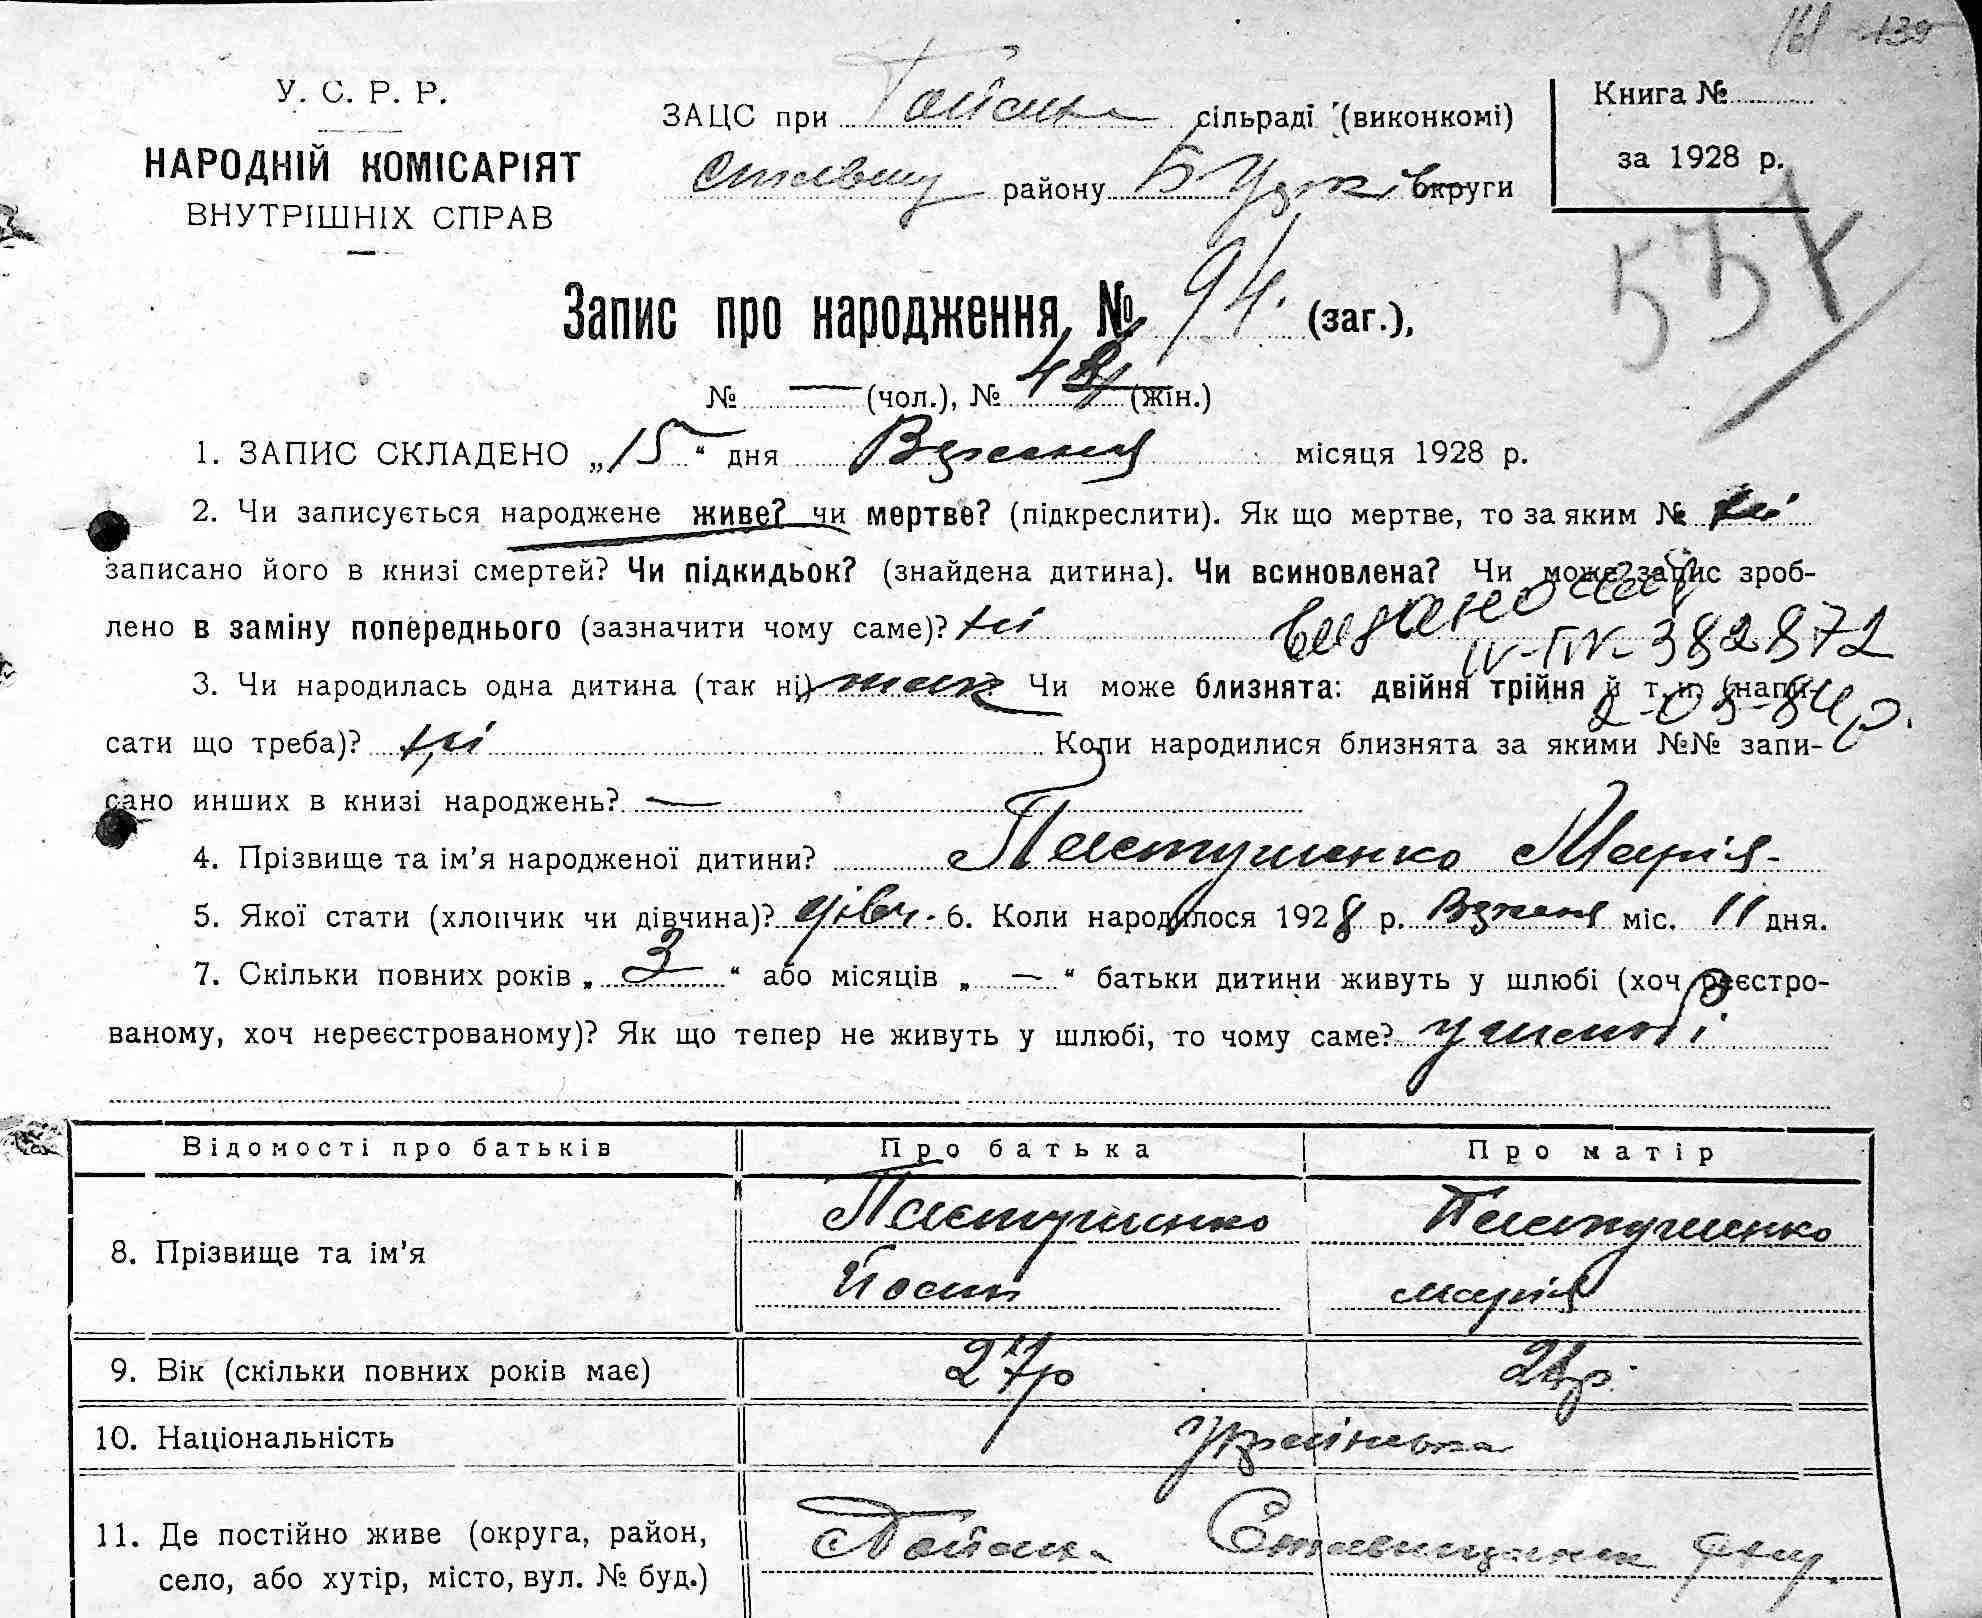 У. С. Р. Р.
НАРОДНІЙ КОМІСАРІЯТ
ВНУТРІШНІХ СПРАВ
ЗАЦС при сільраді (виконкомі)
району округи
Книга №
за 1928 р.
Запис про народження, № 94. (заг.),
№ — (чол.), № (жін.)
1. ЗАПИС СКЛАДЕНО „15“ дня Вересня місяця 1928 р.
2. Чи записується народжене живе? чи мертве? (підкреслити). Як що мертве, то за яким № ні
записано його в книзі смертей? Чи підкидьок? (знайдена дитина). Чи всиновлена? Чи може запис зроб-
лено в заміну попереднього (зазначити чому саме)? ні
видано
IV-ГЖ-382872
2-03-84 р.
3. Чи народилась одна дитина (так ні) так Чи може близнята: двійня трійня й т. и. (напи-
сати що треба)? ні Коли народилися близнята за якими №№ запи-
сано инших в книзі народжень? —
4. Прізвище та ім’я народженої дитини? Пастушенко Марія
5. Якої стати (хлопчик чи дівчина)? дівч. 6. Коли народилося 1928 р. Вересня міс. 11 дня.
7. Скільки повних років „ 3 “ або місяців „ — “ батьки дитини живуть у шлюбі (хоч реєстро-
ваному, хоч нереєстрованому)? Як що тепер не живуть у шлюбі, то чому саме? у шлюбі
Відомості про батьків Про батька Про матір
8. Прізвище та ім’я Пастушенко Йосип Пастушенко Марія
9. Вік (скільки повних років має) 27р
10. Національність Українська
11. Де постійно живе (округа, район,
село, або хутір, місто, вул. № буд.)